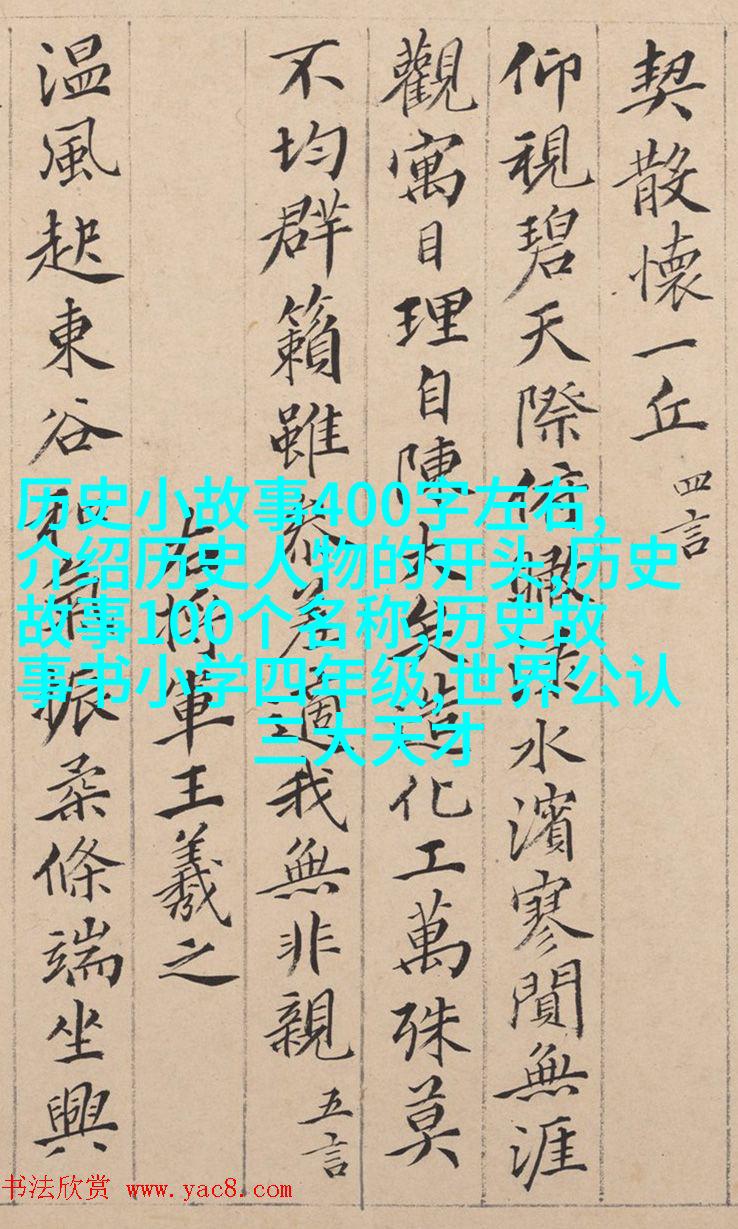 契散懷一丘 四言
仰視碧天際俯瞰水濱寥閴無涯
觀寓目理自陳大矣造化工萬殊莫
不均群籟雖參差適我無非親 五言
右將軍王羲之
温風起東谷和氣振柔條端坐興
历史小故事400字左右,
介绍历史人物的开头,历史
故事100个名称,历史故
事书小学四年级,世界公认
三大天才
书法欣赏 www.yac8.com